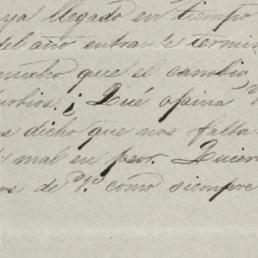 ya llegado en tiempo
del año entrante termin
mucho que el cambio
turbios. ¡ Qué opina V
s dicho que nos falta
mal en peor. Quier
de V. como siempre